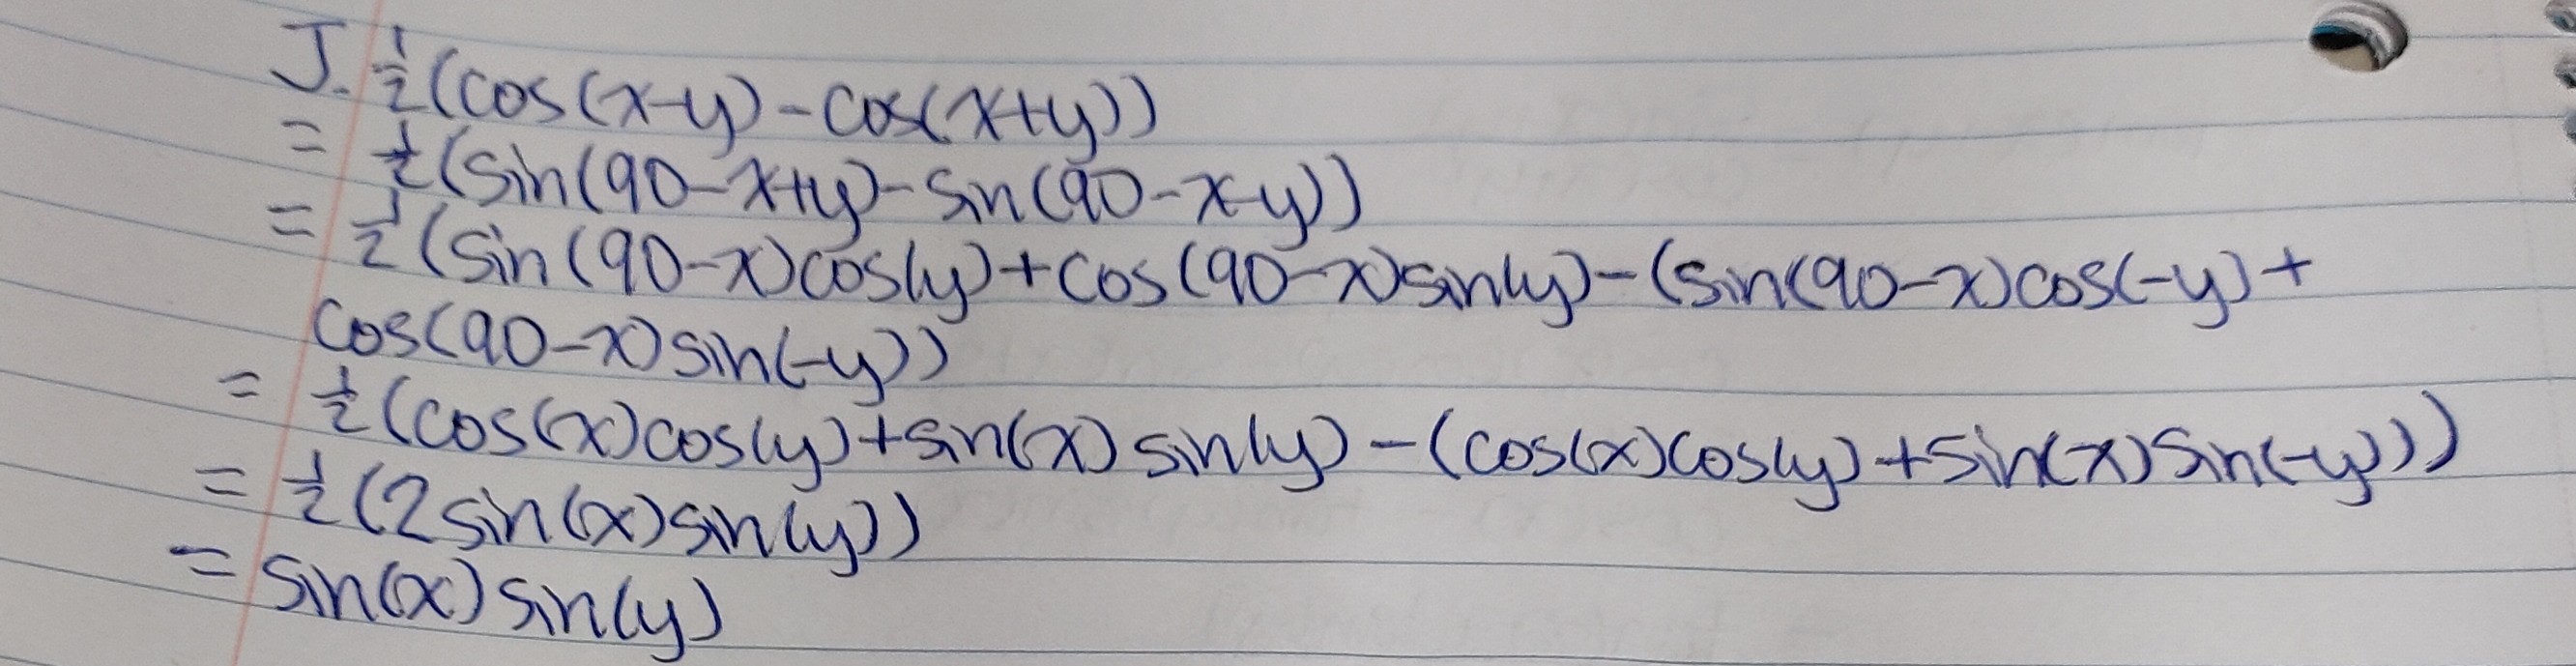 J. 1/2(cos(x-y)-cos(x+y))
= 1/2(sin(90-x+y)-sin(90-x-y))
= 1/2(sin(90-x)cos(y)+cos(90-x)sin(y)-(sin(90-x)cos(-y)+
cos(90-x)sin(-y))
= 1/2(cos(x)cos(y)+sin(x)sin(y)-(cos(x)cos(y)+sin(x)sin(-y)))
= 1/2(2sin(x)sin(y))
= sin(x)sin(y)